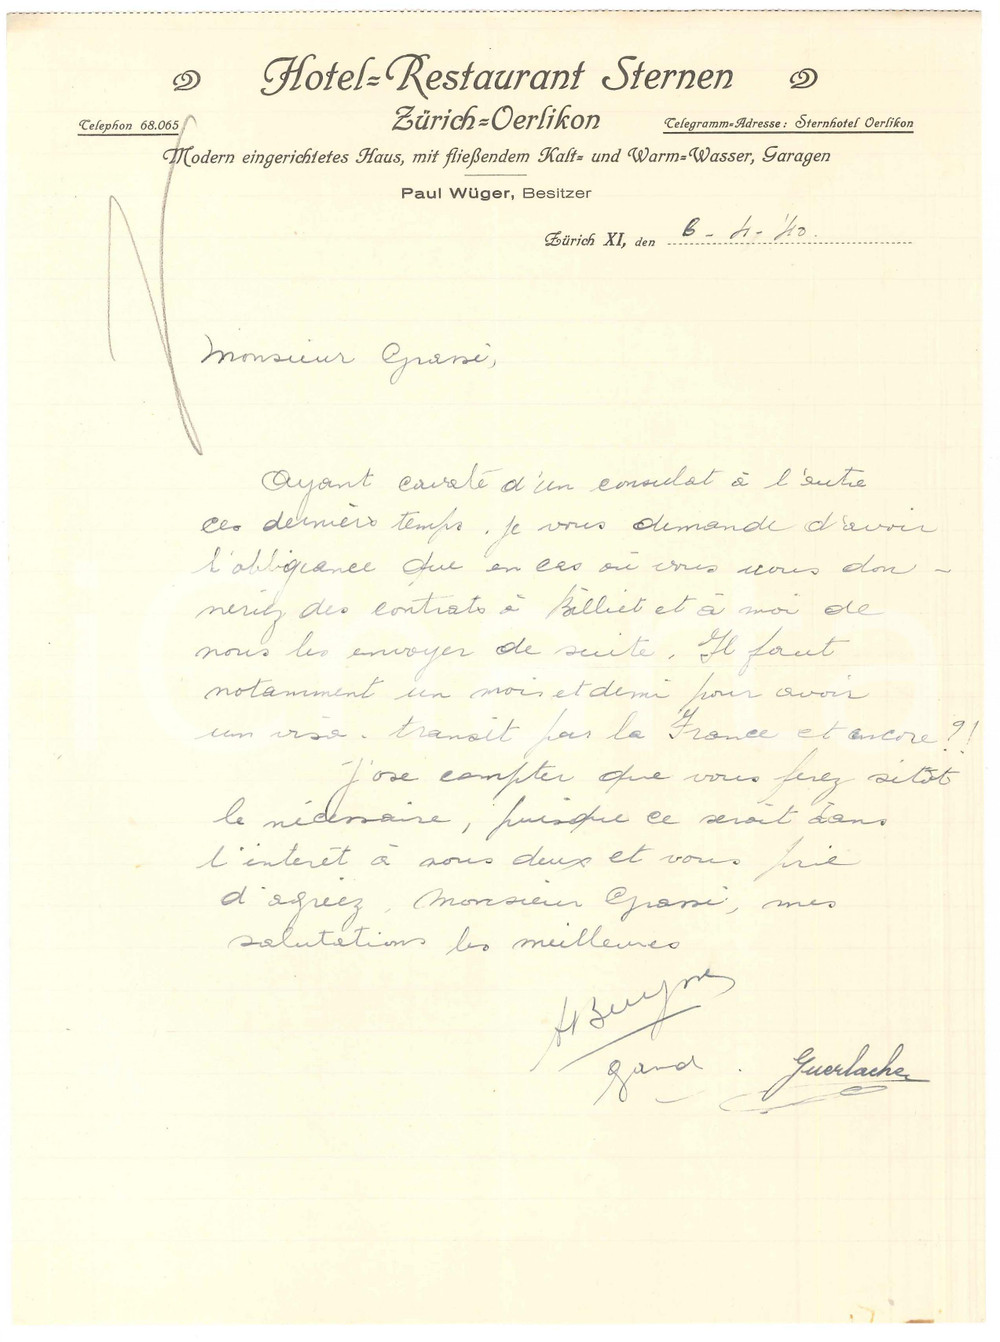 Hotel=Restaurant Sternen
Zürich=Oerlikon
Telephon 68.065
Telegramm=Adresse: Sternhotel Oerlikon
Modern eingerichtetes Haus, mit fließendem Kalt= und Warm=Wasser, Garagen
Paul Wüger, Besitzer
Zürich XI, den 6 - 4 - '40.
Monsieur Grassi,
Ayant cavalé d'un consulat à l'autre
ces derniers temps, je vous demande d'avoir
l'obligeance que en cas où vous nous don -
neriez des contrats à Billiet et à moi de
nous les envoyer de suite. Il faut
notamment un mois et demi pour avoir
un visa - transit par la France et encore ?!
J'ose compter que vous ferez sitôt
le nécessaire, puisque ce serait dans
l'interêt à nous deux et vous prie
d'agréez, Monsieur Grassi, mes
salutations les meilleures
Gand. Guerlache